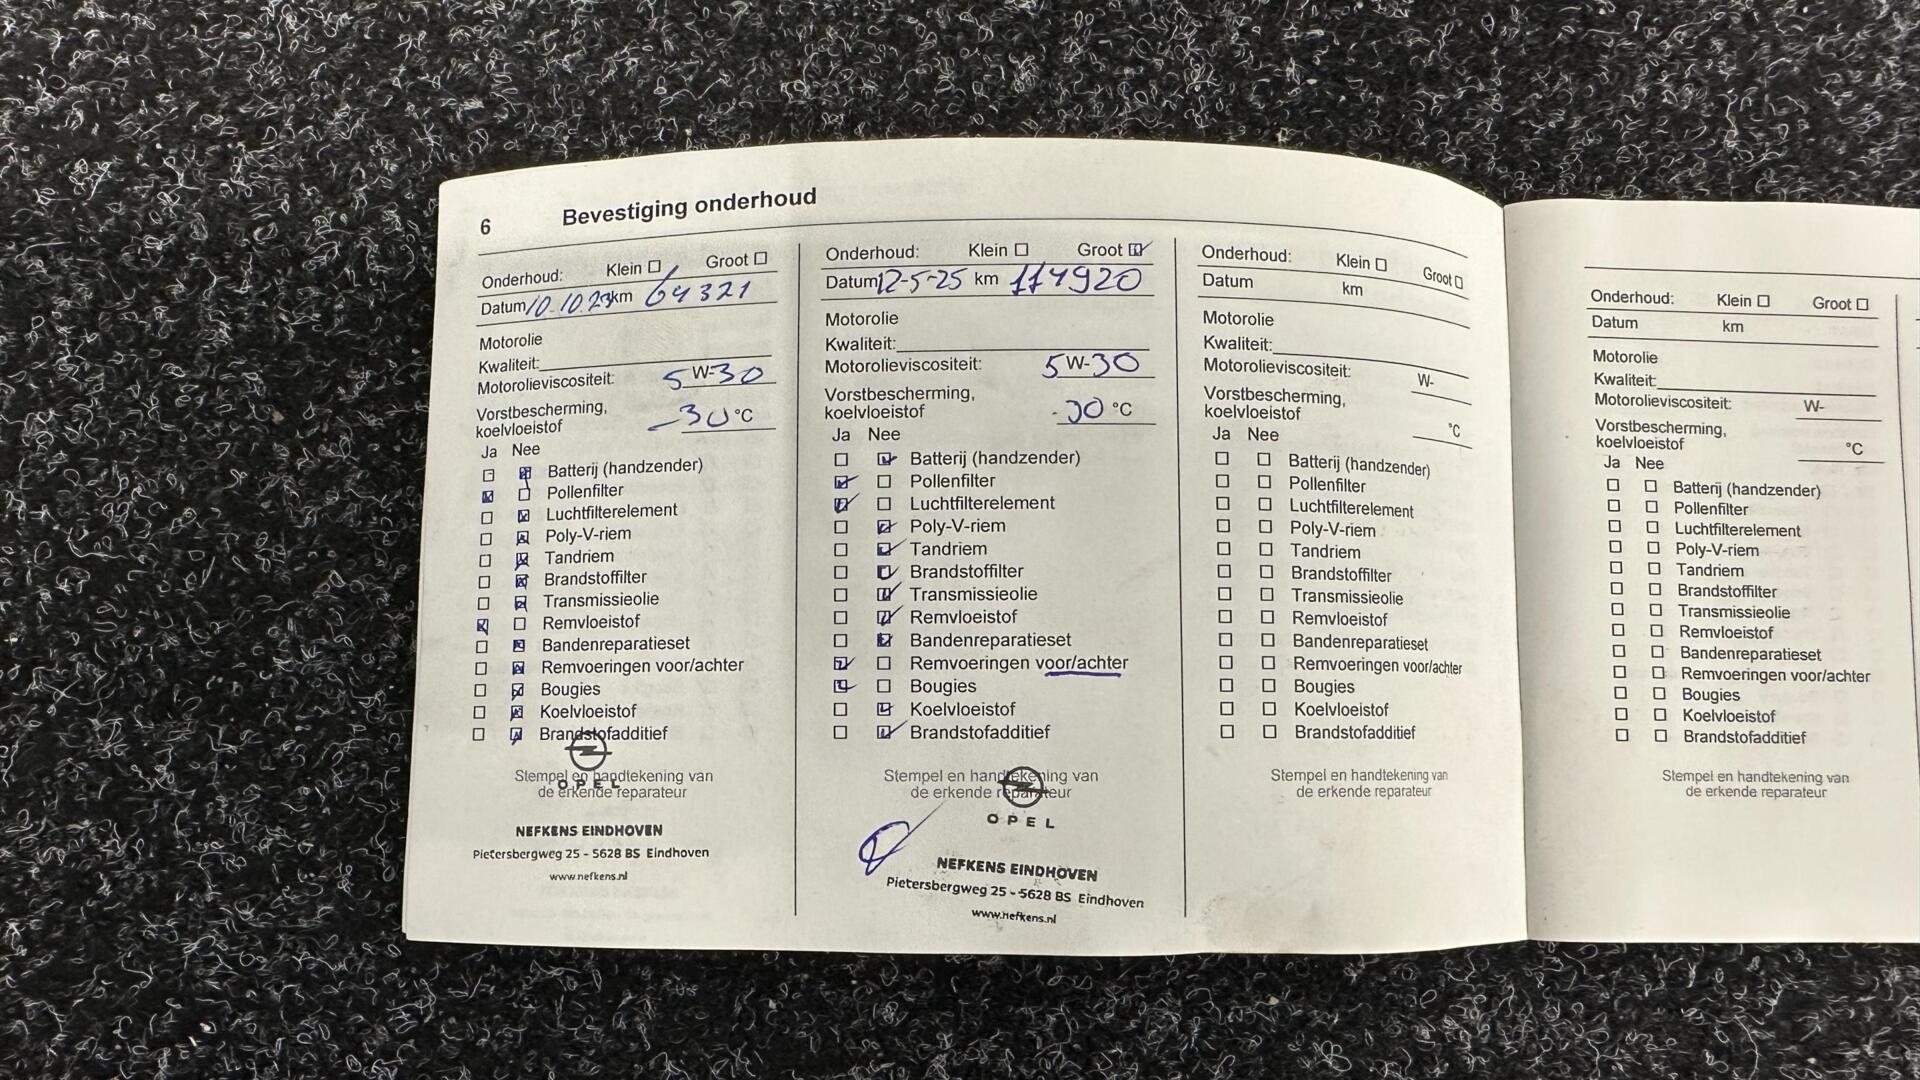 6 Bevestiging onderhoud
Onderhoud: Klein Groot
Datum 10.10.23 km 64321
Motorolie
Kwaliteit:
Motorolieviscositeit: 5 W-30
Vorstbescherming,
koelvloeistof -30 °C
Ja Nee
Batterij (handzender)
Pollenfilter
Luchtfilterelement
Poly-V-riem
Tandriem
Brandstoffilter
Transmissieolie
Remvloeistof
Bandenreparatieset
Remvoeringen voor/achter
Bougies
Koelvloeistof
Brandstofadditief
Stempel en handtekening van
de erkende reparateur
OPEL
NEFKENS EINDHOVEN
Pietersbergweg 25 - 5628 BS Eindhoven
www.nefkens.nl
Onderhoud: Klein Groot
Datum 12-5-25 km 114920
Motorolie
Kwaliteit:
Motorolieviscositeit: 5 W-30
Vorstbescherming,
koelvloeistof -30 °C
Ja Nee
Batterij (handzender)
Pollenfilter
Luchtfilterelement
Poly-V-riem
Tandriem
Brandstoffilter
Transmissieolie
Remvloeistof
Bandenreparatieset
Remvoeringen voor/achter
Bougies
Koelvloeistof
Brandstofadditief
Stempel en handtekening van
de erkende reparateur
OPEL
NEFKENS EINDHOVEN
Pietersbergweg 25 - 5628 BS Eindhoven
www.nefkens.nl
Onderhoud: Klein Groot
Datum km
Motorolie
Kwaliteit:
Motorolieviscositeit: W-
Vorstbescherming,
koelvloeistof °C
Ja Nee
Batterij (handzender)
Pollenfilter
Luchtfilterelement
Poly-V-riem
Tandriem
Brandstoffilter
Transmissieolie
Remvloeistof
Bandenreparatieset
Remvoeringen voor/achter
Bougies
Koelvloeistof
Brandstofadditief
Stempel en handtekening van
de erkende reparateur
Onderhoud: Klein Groot
Datum km
Motorolie
Kwaliteit:
Motorolieviscositeit: W-
Vorstbescherming,
koelvloeistof °C
Ja Nee
Batterij (handzender)
Pollenfilter
Luchtfilterelement
Poly-V-riem
Tandriem
Brandstoffilter
Transmissieolie
Remvloeistof
Bandenreparatieset
Remvoeringen voor/achter
Bougies
Koelvloeistof
Brandstofadditief
Stempel en handtekening van
de erkende reparateur